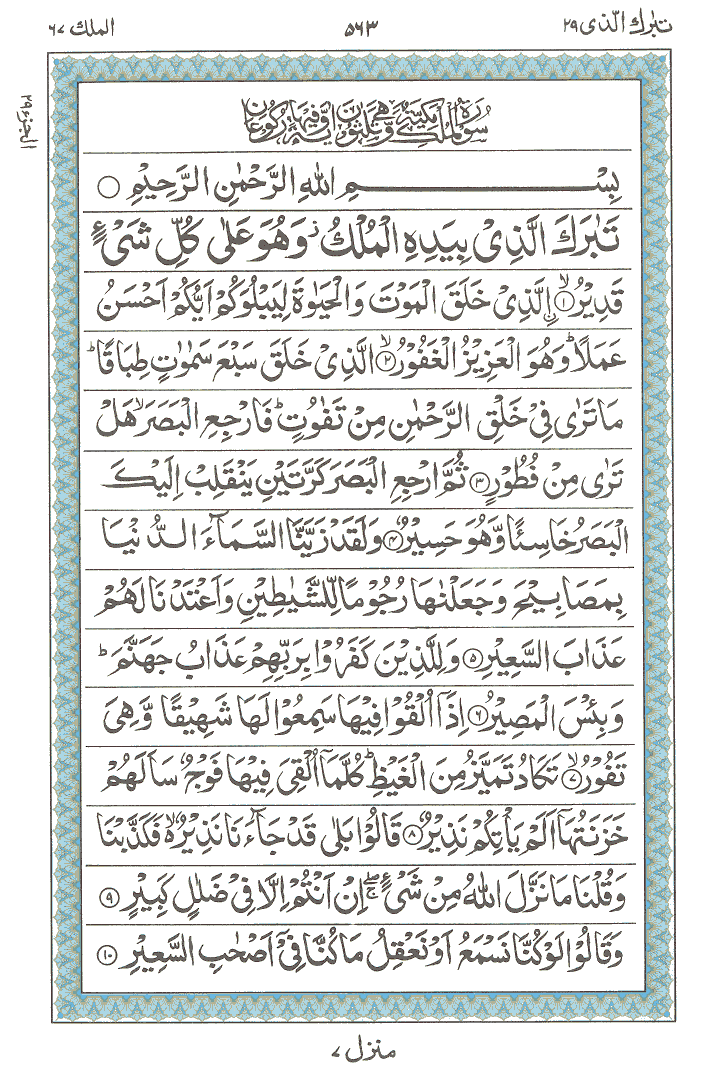 تبٰرك الذی ۲۹
۵۶۳
الملك ۶۷
الجزء ۲۹
سُوْرَةُ الْمُلْكِ مَكِّيَّةٌ وَّهِيَ ثَلٰثُوْنَ اٰيَةً وَّفِيْهَا رُكُوْعَانِ
بِسْمِ اللّٰهِ الرَّحْمٰنِ الرَّحِيْمِ ○
تَبٰرَكَ الَّذِیْ بِیَدِهِ الْمُلْكُ ؗ وَهُوَ عَلٰی كُلِّ شَیْءٍ
قَدِیْرُ ۙ﴿۱﴾ اِ۟لَّذِیْ خَلَقَ الْمَوْتَ وَالْحَیٰوةَ لِیَبْلُوَكُمْ اَیُّكُمْ اَحْسَنُ
عَمَلًا ؕ وَهُوَ الْعَزِیْزُ الْغَفُوْرُ ۙ﴿۲﴾ الَّذِیْ خَلَقَ سَبْعَ سَمٰوٰتٍ طِبَاقًا ؕ
مَا تَرٰی فِیْ خَلْقِ الرَّحْمٰنِ مِنْ تَفٰوُتٍ ؕ فَارْجِعِ الْبَصَرَ ۙ هَلْ
تَرٰی مِنْ فُطُوْرٍ ﴿۳﴾ ثُمَّ ارْجِعِ الْبَصَرَ كَرَّتَیْنِ یَنْقَلِبْ اِلَیْكَ
الْبَصَرُ خَاسِئًا وَّهُوَ حَسِیْرٌ ﴿۴﴾ وَلَقَدْ زَیَّنَّا السَّمَآءَ الدُّنْیَا
بِمَصَابِیْحَ وَجَعَلْنٰهَا رُجُوْمًا لِّلشَّیٰطِیْنِ وَاَعْتَدْنَا لَهُمْ
عَذَابَ السَّعِیْرِ ﴿۵﴾ وَلِلَّذِیْنَ كَفَرُوْا بِرَبِّهِمْ عَذَابُ جَهَنَّمَ ؕ
وَبِئْسَ الْمَصِیْرُ ﴿۶﴾ اِذَاۤ اُلْقُوْا فِیْهَا سَمِعُوْا لَهَا شَهِیْقًا وَّهِیَ
تَفُوْرُ ۙ﴿۷﴾ تَكَادُ تَمَیَّزُ مِنَ الْغَیْظِ ؕ كُلَّمَاۤ اُلْقِیَ فِیْهَا فَوْجٌ سَاَلَهُمْ
خَزَنَتُهَاۤ اَلَمْ یَاْتِكُمْ نَذِیْرٌ ﴿۸﴾ قَالُوْا بَلٰی قَدْ جَآءَنَا نَذِیْرٌ ۙ۬ فَكَذَّبْنَا
وَقُلْنَا مَا نَزَّلَ اللّٰهُ مِنْ شَیْءٍ ۖۚ اِنْ اَنْتُمْ اِلَّا فِیْ ضَلٰلٍ كَبِیْرٍ ﴿۹﴾
وَقَالُوْا لَوْ كُنَّا نَسْمَعُ اَوْ نَعْقِلُ مَا كُنَّا فِیْۤ اَصْحٰبِ السَّعِیْرِ ﴿۱۰﴾
منزل ۷